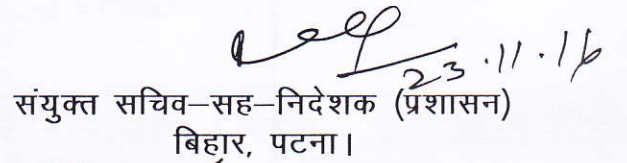 23.11.16
संयुक्त सचिव–सह–निदेशक (प्रशासन)
बिहार, पटना।